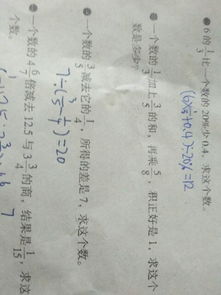 ● 6的1/3比一个数的20%少0.4，求这个数。
(6×1/3+0.4)÷20%=12
● 一个数的1/3加上3/5的和，再乘5/8，积正好是1，求这个
数是多少？
● 一个数的3/5减去它的1/4，所得的差是7，求这个数。
7÷(3/5-1/4)=20
一个数的4 6/7倍减去12.5与3 3/4的商，结果是1/15，求这
个数。